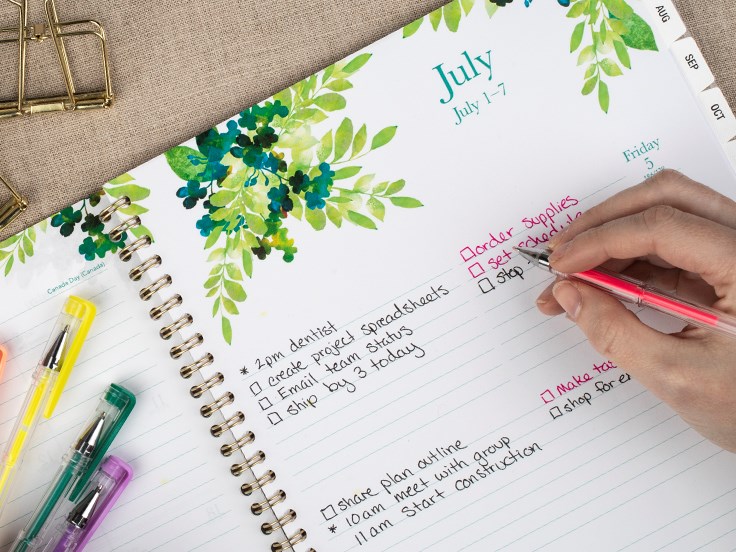 AUG
SEP
OCT
July
July 1–7
Friday
5
Canada Day (Canada)
□ order supplies
□ set schedule
□ stop
* 2pm dentist
□ create project spreadsheets
□ Email team status
□ ship by 3 today
□ Make
□ shop for
□ share plan outline
* 10am meet with group
11am start construction